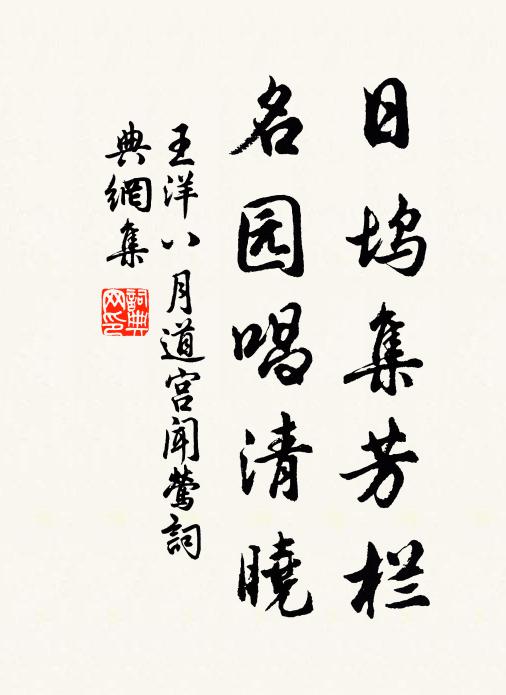 日坞集芳栏
名园唱清曉
王洋八月道宫闻莺詞
典網集
詞典网印